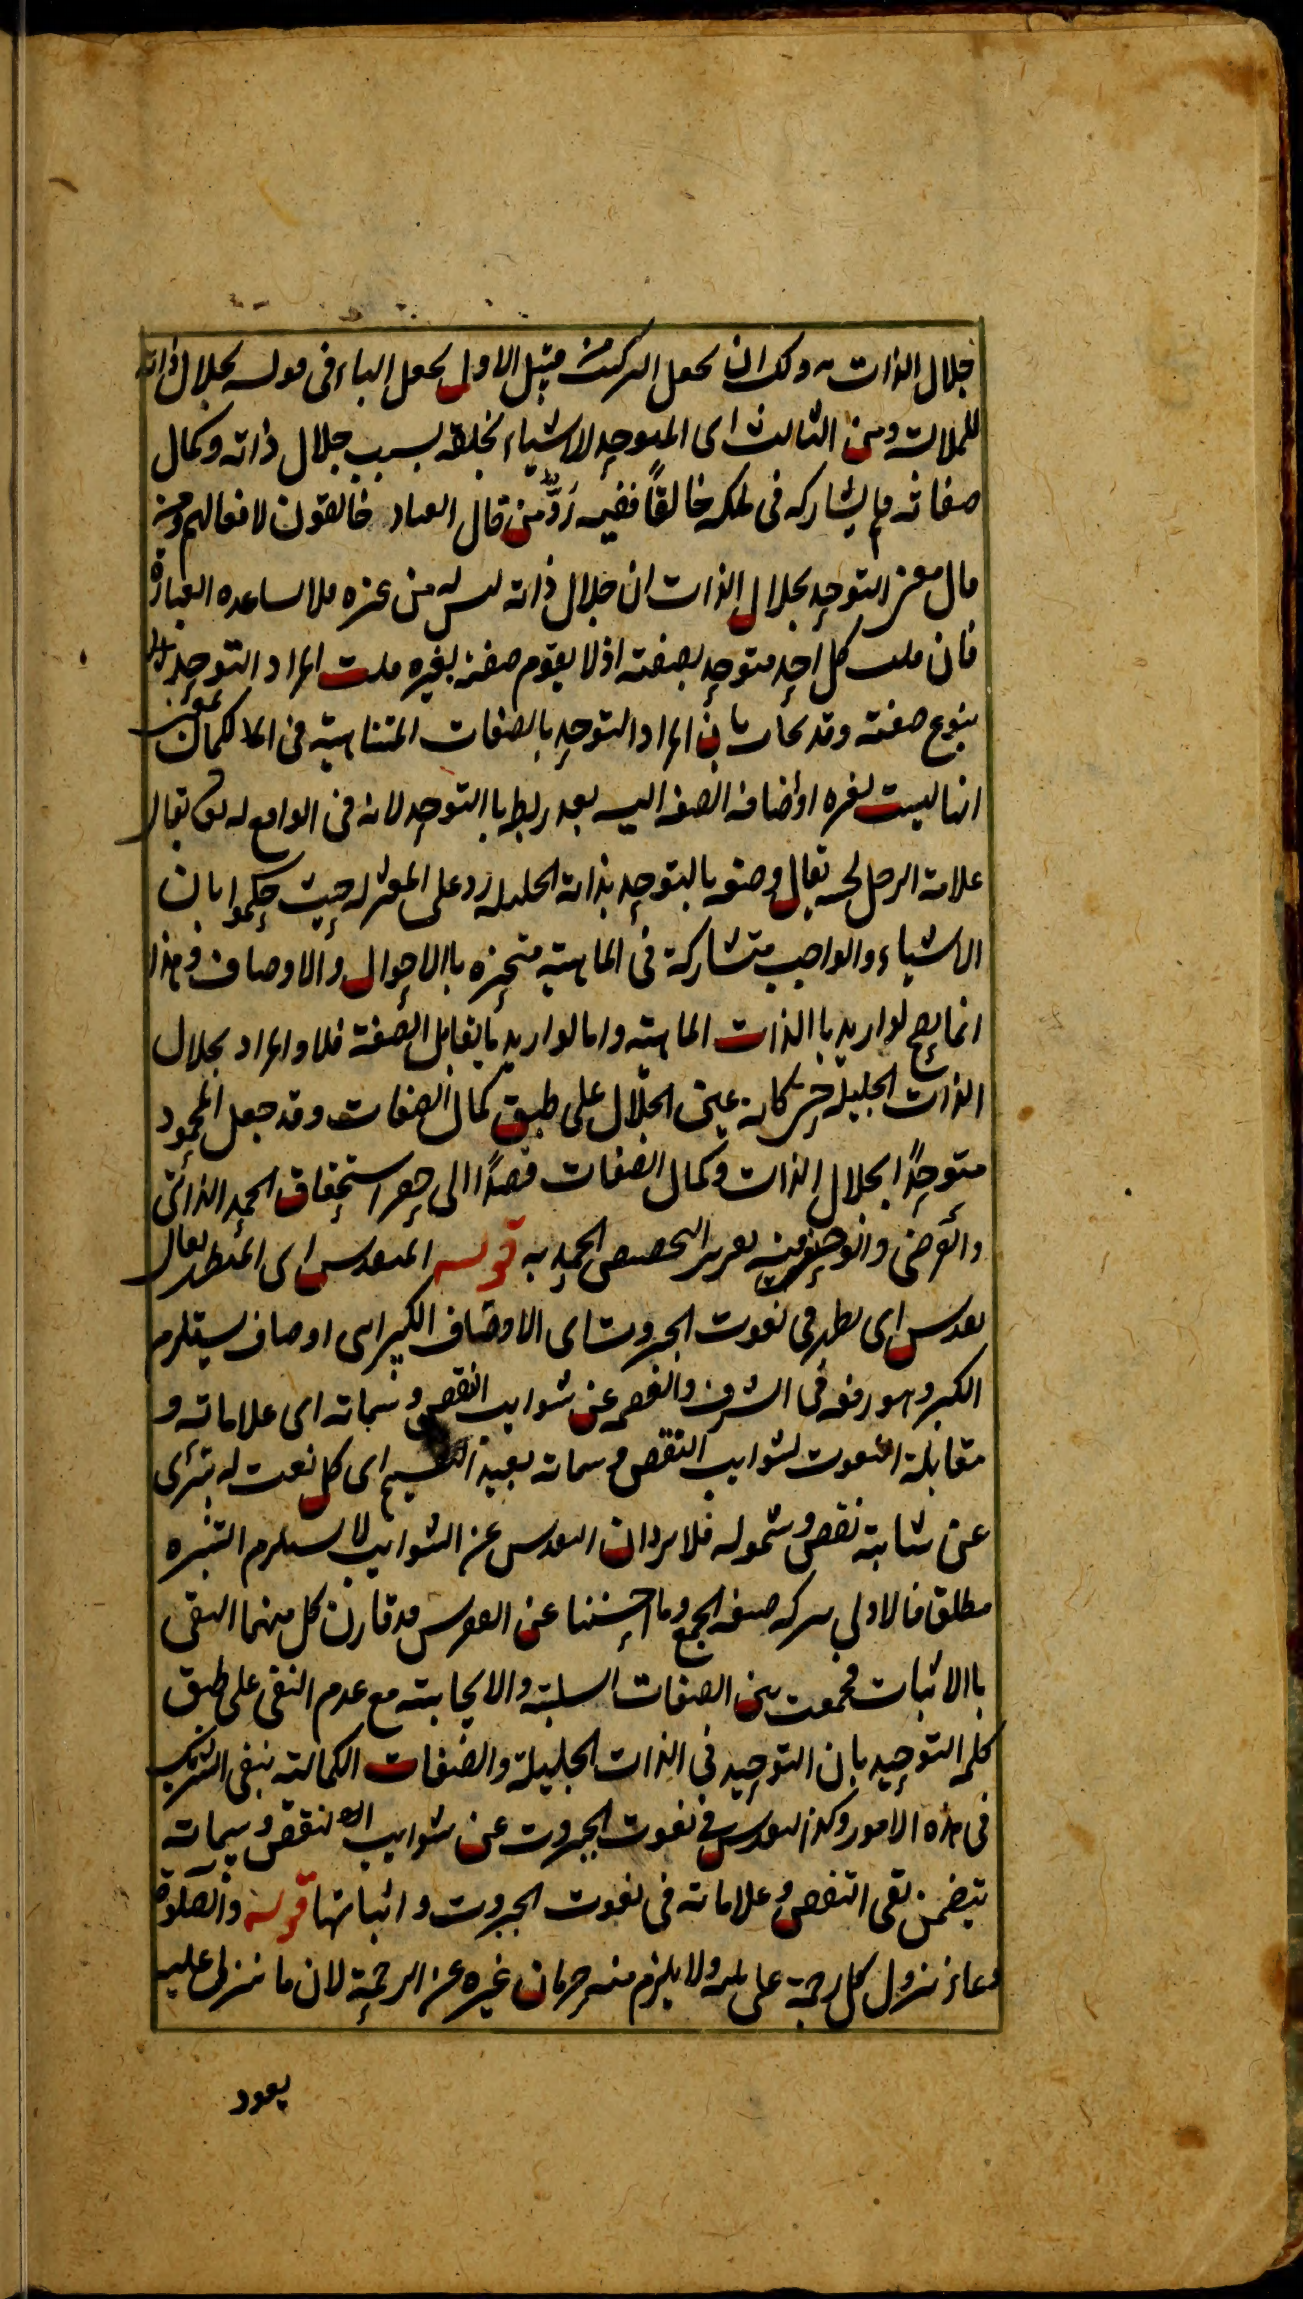 جلال الذات به ولك ان تجعل التركيب من قبيل الاول بجعل الباء فى قوله بجلال ذاته
للملابسة ومن الثالث اى المتوحد للاشياء بخلقه بسبب جلال ذاته وكمال
صفاته فلم يشاركه فى ملكه خالقًا ففيه رَدٌّ من قال العباد خالقون لافعالهم ومن
قال معنى التوحد بجلال الذات ان جلال ذاته ليس له من غيره فلا يساعده العبارة
فان قلت كل احد متوحد بصفته اذ لا يقوم صفته بغيره قلت المراد التوحد
بنوع صفته وقد يجاب بان المراد التوحد بالصفات المتناهية فى الكمال
انها ليست لغيره او اضافة الصفة اليه بعد ربط باالتوحد لانه فى الواقع له
تعالى وصفه بالتوحد بذاته الجليله رد على المعتزله حيث حكموا بان
الاشياء والواجب متشاركة فى الماهية متميزه باالاحوال والاوصاف وهذا
انما يصح لو اريد باالذات الماهية واما لو اريد ما يقابل الصفة فلا والمراد بجلال
الذات الجليلة حتى كانه عين الجلال على طبق كمال الصفات وقد جعل المحمود
متوحدًا بجلال الذات وكمال الصفات قصدًا الى حصر استحقاق الحمد الذاتى
والعرضى وانو حنيفه تقرير التخصيص الحمد به قوله المتقدس اى المتطهر يقال
تقدس اى تطهر فى نعوت الجبروت اى الاوصاف الكبر اى اوصاف يستلزم
الكبر وهو رفعه فى الشرف والعصمه عن شوايب النقص وسماته اى علاماته و
مقابلة النعوت لشوايب النقص وسماته يفيد اى كل نعت له متبرى
عن شائبة نقص وشموله فلا يرد ان التقدس عن الشوايب لا يستلزم التنزه
مطلق فالاولى تركه صيغه الجمع وما احسننا عن التقدس قد قارن كل منهما النفى
باالاثبات فجمعت بين الصفات السلبية والايجابيه مع عدم النفى على طبق
كلمه التوحيد بان التوحيد فى الذات الجليلة والصفات الكمالية بنفى الشريك
فى هذه الامور وكذا التقدس فى نعوت الجبروت عن شوايب النقص وسماته
يتضمن نفى النقص وعلاماته فى نعوت الجبروت واثباتها قوله والصلوة
دعاء نزول كل رحمة على نبيه ولا يلزم منه حرمان غيره عن الرحمة لان ما نزل عليه
يعود